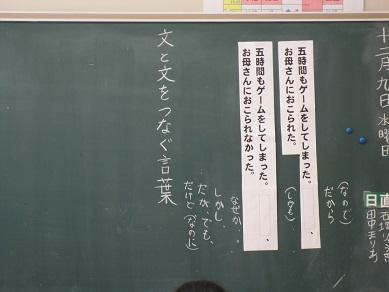 十二月九日 水曜日
日直
五時間もゲームをしてしまった。
お母さんにおこられた。
(なので)
だから
(しかも)
五時間もゲームをしてしまった。
お母さんにおこられなかった。
なぜか、
しかし
だが、でも、
だけど(なのに)
文と文をつなぐ言葉